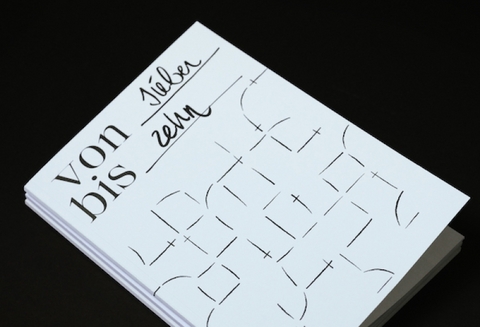 von sieben
bis zehn